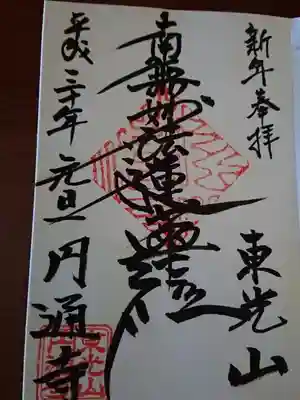 新年奉拝
東光山
南無妙法蓮華経
平成三十年元旦
円通寺